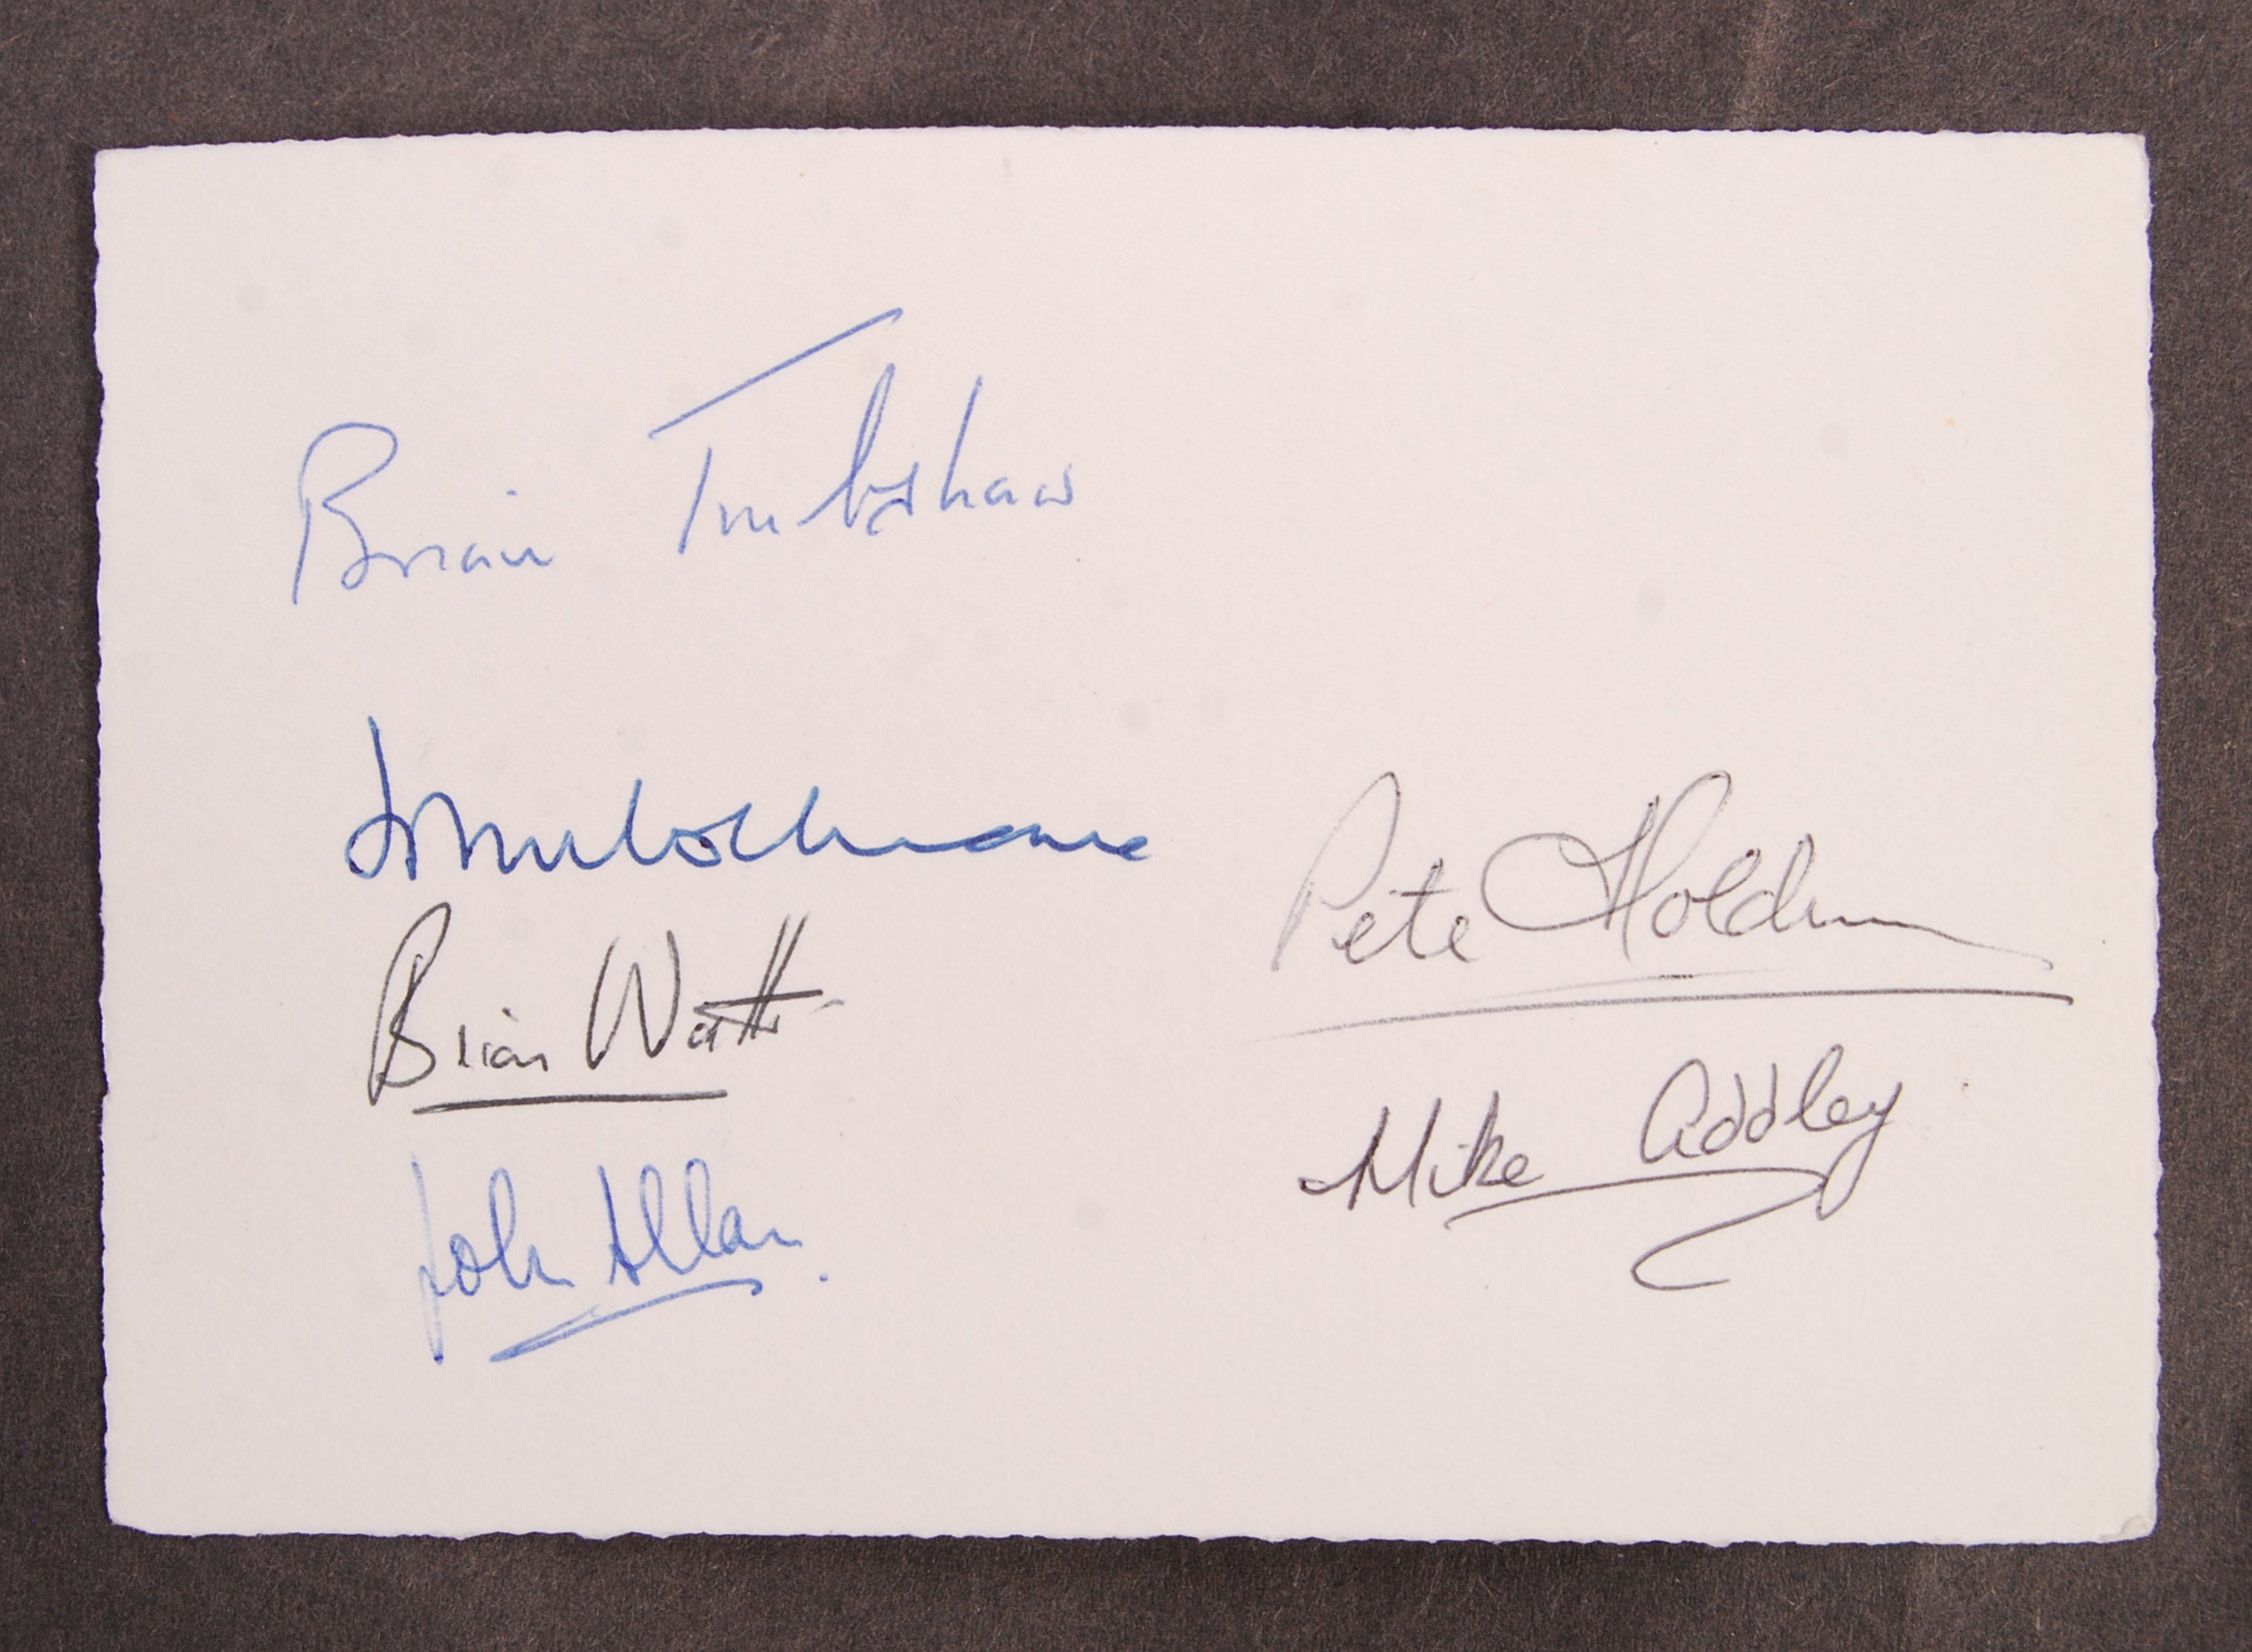 Brian Trubshaw
Brian Watts
John Allan.
Pete Holding
Mike Addley